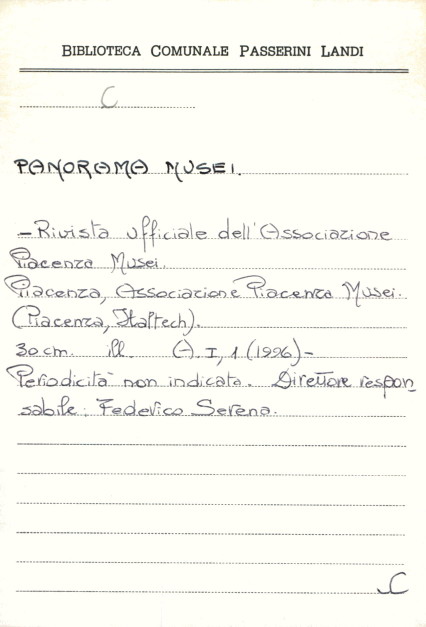 BIBLIOTECA COMUNALE PASSERINI LANDI
C
PANORAMA MUSEI.
- Rivista ufficiale dell'Associazione
Piacenza Musei.
Piacenza, Associazione Piacenza Musei.
(Piacenza, Italtech).
30 cm. ill. A. I, 1 (1996) -
Periodicità non indicata. Direttore respon
sabile: Federico Serena.
C